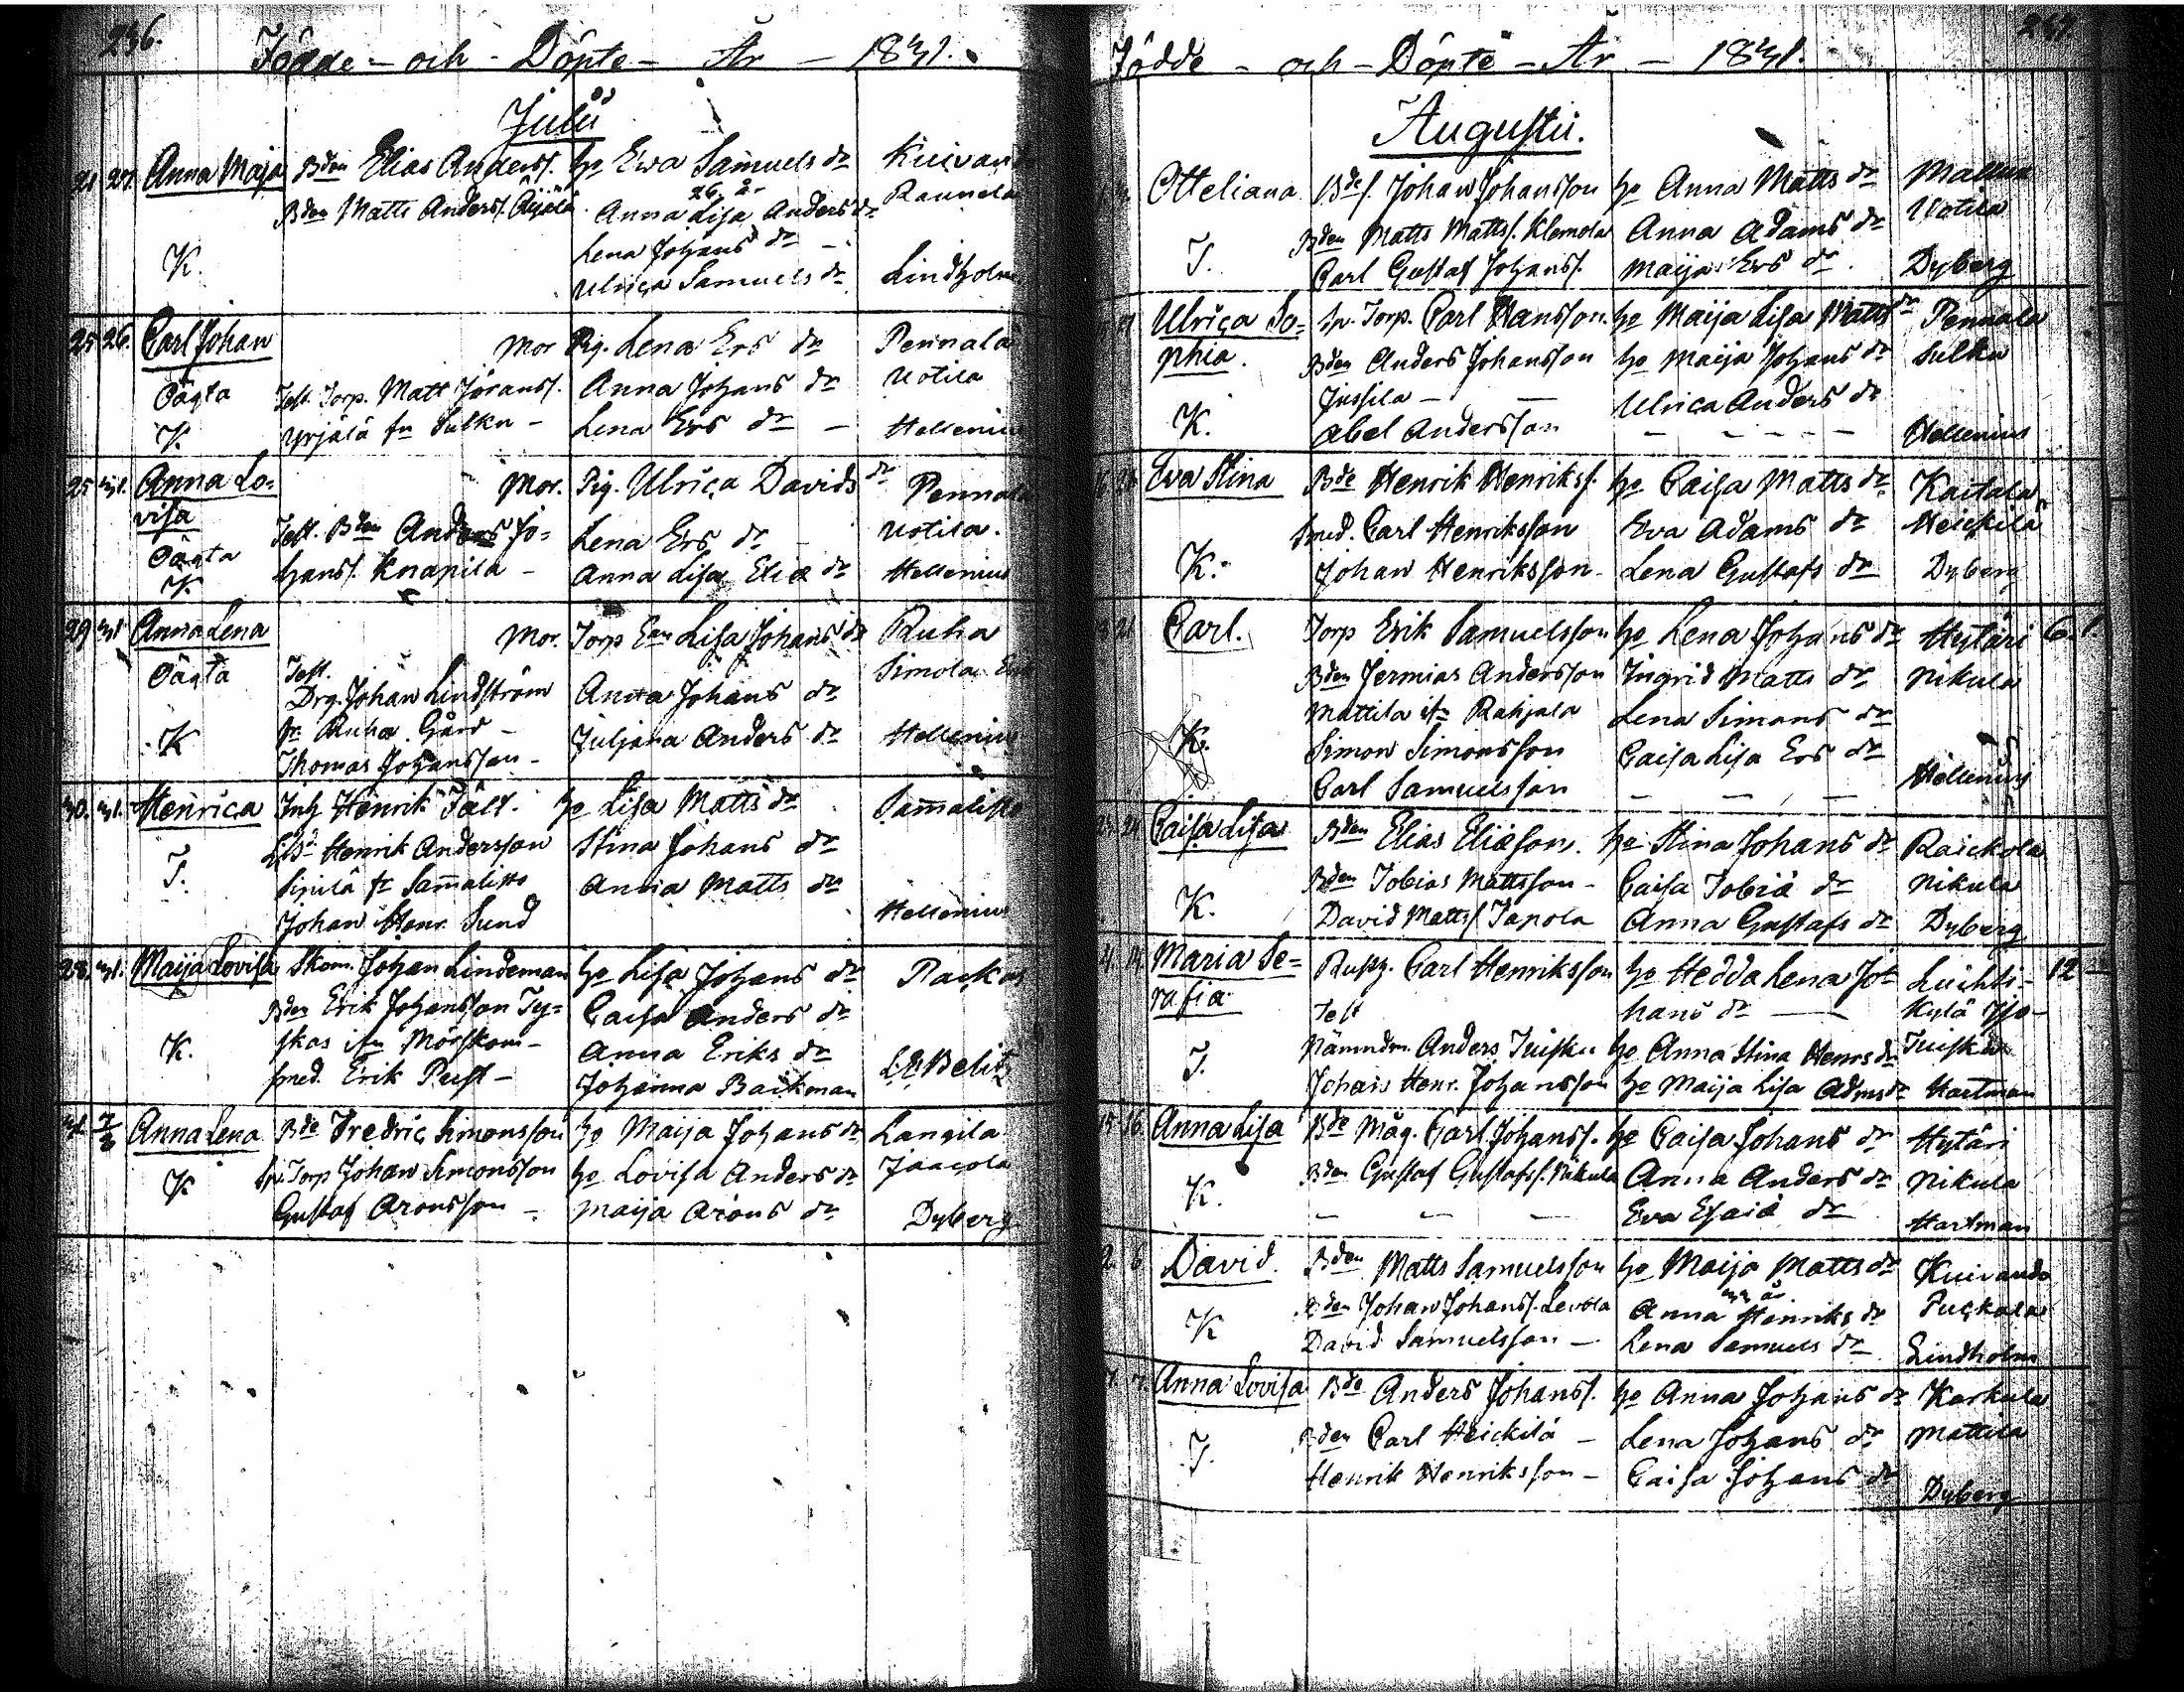 236.
Födde - och - Döpte - År - 1831.
Julii
21 27. Anna Maja Bden Elias Anderss. ho Ewa Samuels dr Kuivand
26 år
Bden Matts Anderss. Äijälä Anna Lisa Anders dr Rannela
Lena Johans dr -
K. Ulrica Samuels dr Lindholm
25 26. Carl Johan Mor Pig. Lena Ers dr Pennala
Oägta Test. Torp. Matt Göranss. Anna Johans dr Uotila
K. Yrjälä fr Sulku - Lena Ers dr - Hellenius
25 31. Anna Lo= Mor. Pig. Ulrica Davids dr Pennala
visa Test. Bden Anders Jo= Lena Ers dr - Uotila.
Oägta hanss. Knapila - Anna Lisa Eliæ dr Hellenius
K.
29 31 Anna Lena Mor. Torp Enk Lisa Johans dr Ruha
Oägta Test. Simola
Drg. Johan Lindström Anna Johans dr
K fr Ruha Gård - Juljana Anders dr Hellenius
Thomas Johansson -
30. 31. Henrica Inh Henrik Fält. ho Lisa Matts dr Sam̄alisto
Henrik Andersson Stina Johans dr
T. Sipilä fr Sam̄alisto Anna Matts dr
Johan Henr. Sund Hellenius
28. 31. Maija Lovisa Skom. Johan Lindeman ho Lisa Johans dr Packas
Bden Erik Johansson Ty= Caisa Anders dr
K. skas ifr Mörskom - Anna Eriks dr
smed. Erik Qvist - Johanna Backman Belitz
31. 7/8 Anna Lena Bde Fredric Simonsson ho Maija Johans dr Langila
K Sp. Torp Johan Simonsson ho Lovisa Anders dr Jaacola
Gustaf Aronsson - Maija Arons dr Dyberg
247.
Födde - och - Döpte - År - 1831.
Augustii.
Otteliana Bde s. Johan Johansson ho Anna Matts dr Mallusk
Bden Matts Mattss. Klemola Anna Adams dr Uotila
T. Carl Gustaf Johanss. Maija Ers dr. Dyberg
Ulrica So= Sp. Torp. Carl Hansson. ho Maija Lisa Matts dr Pennala
phia. Bden Anders Johansson ho Maija Johans dr Sulku
Jussila - - Ulrica Anders dr
K. Abel Andersson - - - - - Hellenius
Eva Stina Bde Henrik Henrikss. ho Caisa Matts dr Kaitala
smed. Carl Henriksson Eva Adams dr Heickilä
K. Johan Henriksson - Lena Gustafs dr Dyberg
21 Carl. Torp Erik Samuelsson ho Lena Johans dr Hytäri 6. 1.
Bden Jermias Andersson Ingrid Matts dr Nikula
Mattila ifr Rahjala Lena Simons dr
K. Simon Simonsson Caisa Lisa Ers dr
Carl Samuelsson - - - Hellenius
Caisa Lisa Bden Elias Eliæson. ho Stina Johans dr Raickola
Bden Tobias Mattsson - Caisa Tobiæ dr Nikula
K. David Mattss. Tapola Anna Gustafs dr Dyberg
4. 14 Maria Se= Rusth. Carl Henriksson ho Hedda Lena Jo= Luihti= 12
rafia Test hans dr - Kylä Iso-
Nämndm. Anders Tuisku ho Anna Stina Henrs dr Tuisku
T. Johan Henr. Johansson ho Maija Lisa Adms dr Hartman
15 16. Anna Lisa Bde Måg. Carl Johanss. ho Caisa Johans dr Hytäri
Bden Gustaf Gustafss. Nikula Anna Anders dr Nikula
K. - - - Eva Esaiæ dr Hartman
2. 6 David Bden Matts Samuelsson ho Maija Matts dr Kuivando
år
Bden Johan Johanss. Levola Anna Henriks dr Puckala
K David Samuelsson - Lena Samuels dr Lindholm
7. Anna Lovisa Bde Anders Johanss. ho Anna Johans dr Karkula
Bden Carl Heickilä - Lena Johans dr Mattila
T. Henrik Henriksson - Caisa Johans dr Dyberg